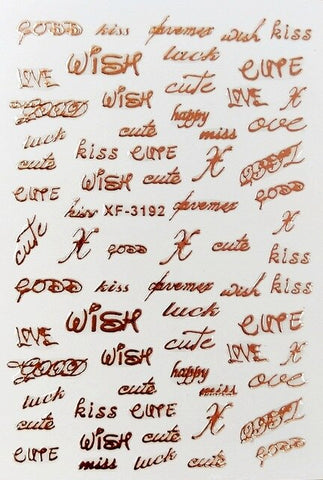 GODD kiss wish kiss
WISH luck CUTE
LOVE WISH cute LOVE X
GOOD happy ove
luck cute miss
cute kiss CUTE X
CUTE WISH cute GODD
kiss XF-3192
cute X GODD X cute X
kiss
GODD kiss wish kiss
WISH luck
LOVE cute CUTE
WISH LOVE X
GOOD happy ove
luck cute miss
cute kiss CUTE X
CUTE WISH cute GODD
miss luck cute